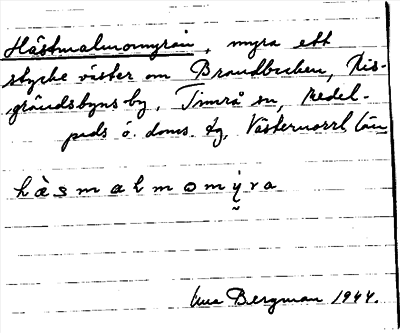 Hästmalmomyran, myra ett
stycke väster om Brandbecken, Ris-
grändsbyns by, Timrå sn, Medel-
pads ö. doms. tg, Västernorrl län
hàsmalmomyra
Una Bergman 1944.